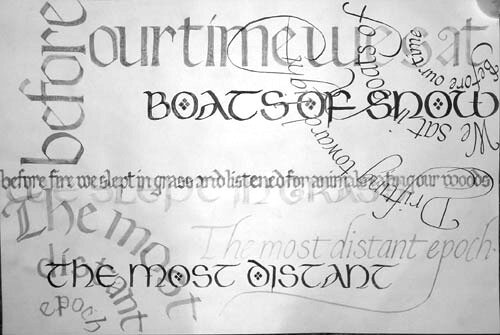 before
our time we sat
BOATS OF SNOW
Before our time
We sat in boats of snow
Drifting toward dawn
before fire we slept in grass and listened for animals eating our woods
WE SLEPT IN GRASS
The most distant epoch
The most distant epoch.
THE MOST DISTANT